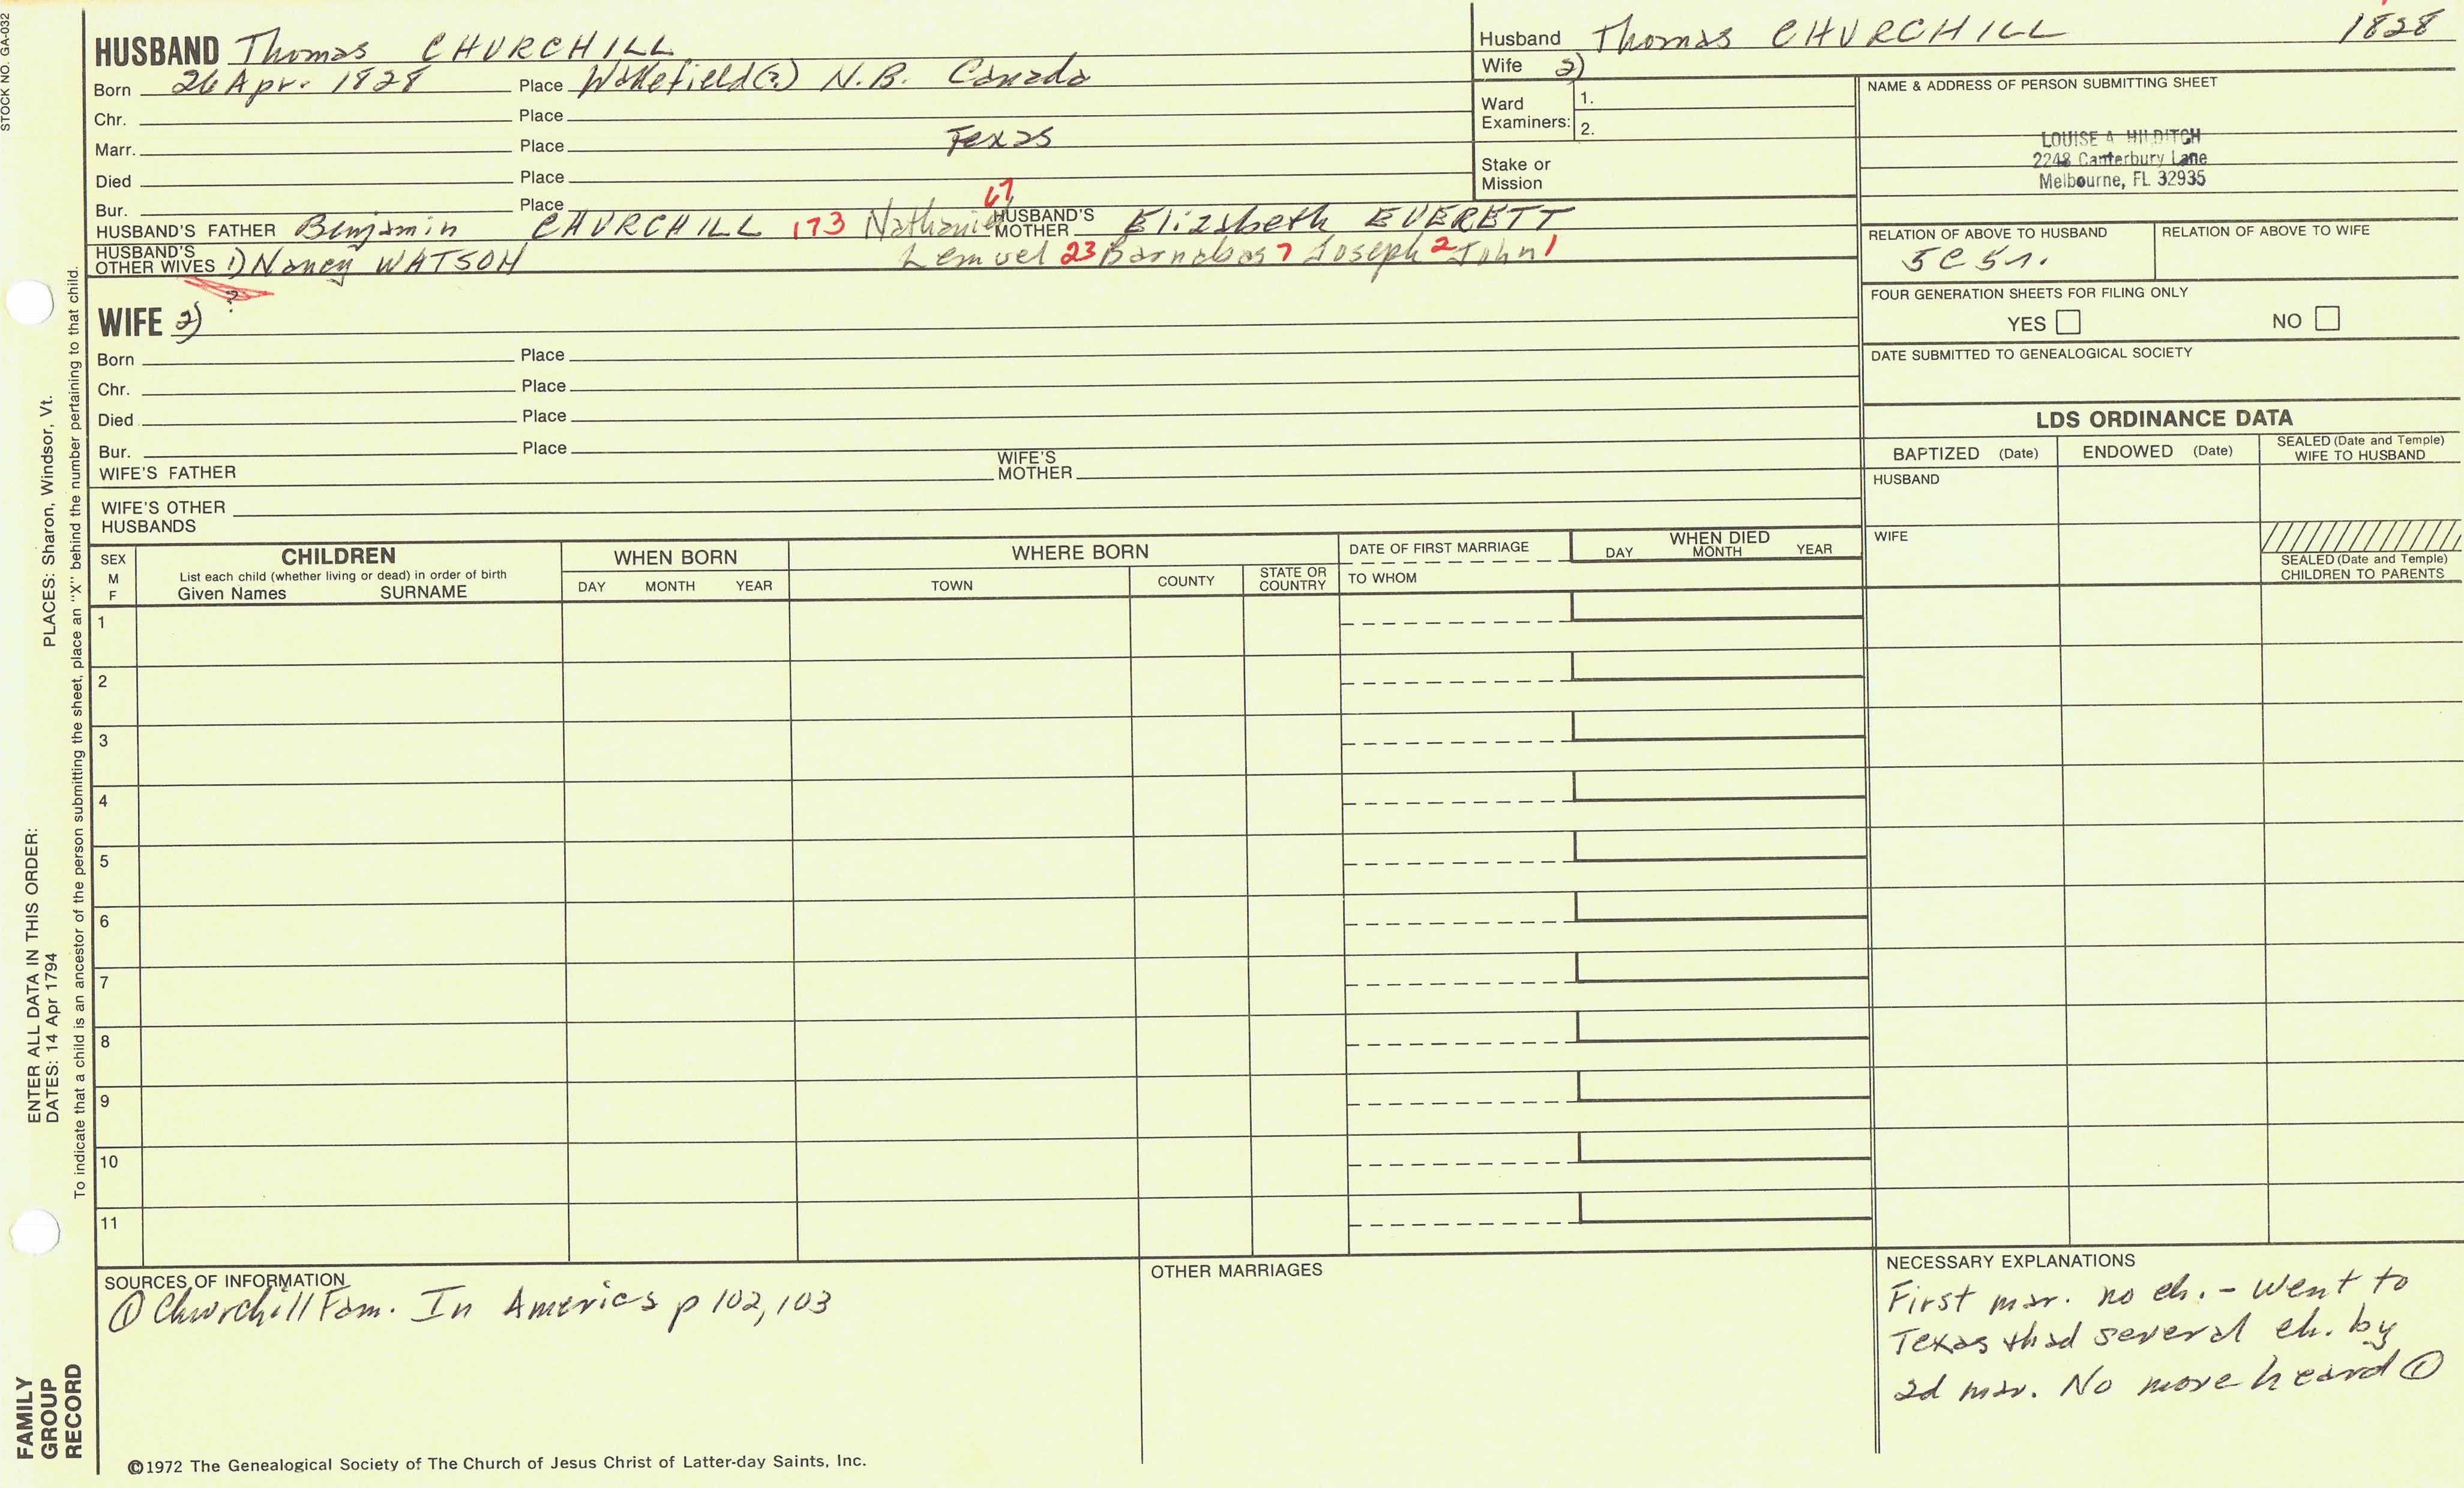 STOCK NO. GA-032
HUSBAND Thomas CHURCHILL
Born 26 Apr. 1828 Place Wakefield(?) N.B. Canada
Chr. Place
Marr. Place Texas
Died Place
Bur. Place
67
HUSBAND'S FATHER Benjamin CHURCHILL 173 Nathaniel HUSBAND'S MOTHER Elizabeth EVERETT
HUSBAND'S OTHER WIVES 1) Nancy WATSON Lemuel 23 Barnabas 7 Joseph 2 John 1
?
WIFE 2)
Born Place
Chr. Place
Died Place
Bur. Place
WIFE'S FATHER WIFE'S MOTHER
WIFE'S OTHER HUSBANDS
Husband Thomas CHURCHILL 1828
Wife 2)
Ward Examiners: 1.
2.
Stake or Mission
NAME & ADDRESS OF PERSON SUBMITTING SHEET
LOUISE A HILDITCH
2248 Canterbury Lane
Melbourne, FL 32935
RELATION OF ABOVE TO HUSBAND RELATION OF ABOVE TO WIFE
FOUR GENERATION SHEETS FOR FILING ONLY
YES NO
DATE SUBMITTED TO GENEALOGICAL SOCIETY
LDS ORDINANCE DATA
BAPTIZED (Date) ENDOWED (Date) SEALED (Date and Temple) WIFE TO HUSBAND
HUSBAND
WIFE
SEALED (Date and Temple) CHILDREN TO PARENTS
SEX M F
CHILDREN
List each child (whether living or dead) in order of birth
Given Names SURNAME
WHEN BORN
DAY MONTH YEAR
WHERE BORN
TOWN COUNTY STATE OR COUNTRY
DATE OF FIRST MARRIAGE
TO WHOM
WHEN DIED
DAY MONTH YEAR
1
2
3
4
5
6
7
8
9
10
11
SOURCES OF INFORMATION
① Churchill Fam. In America p 102, 103
OTHER MARRIAGES
NECESSARY EXPLANATIONS
First mar. no ch. - Went to
Texas +had several ch. by
2d mar. No more heard ①
©1972 The Genealogical Society of The Church of Jesus Christ of Latter-day Saints, Inc.
FAMILY GROUP RECORD
ENTER ALL DATA IN THIS ORDER:
DATES: 14 Apr 1794 PLACES: Sharon, Windsor, Vt.
To indicate that a child is an ancestor of the person submitting the sheet, place an "X" behind the number pertaining to that child.